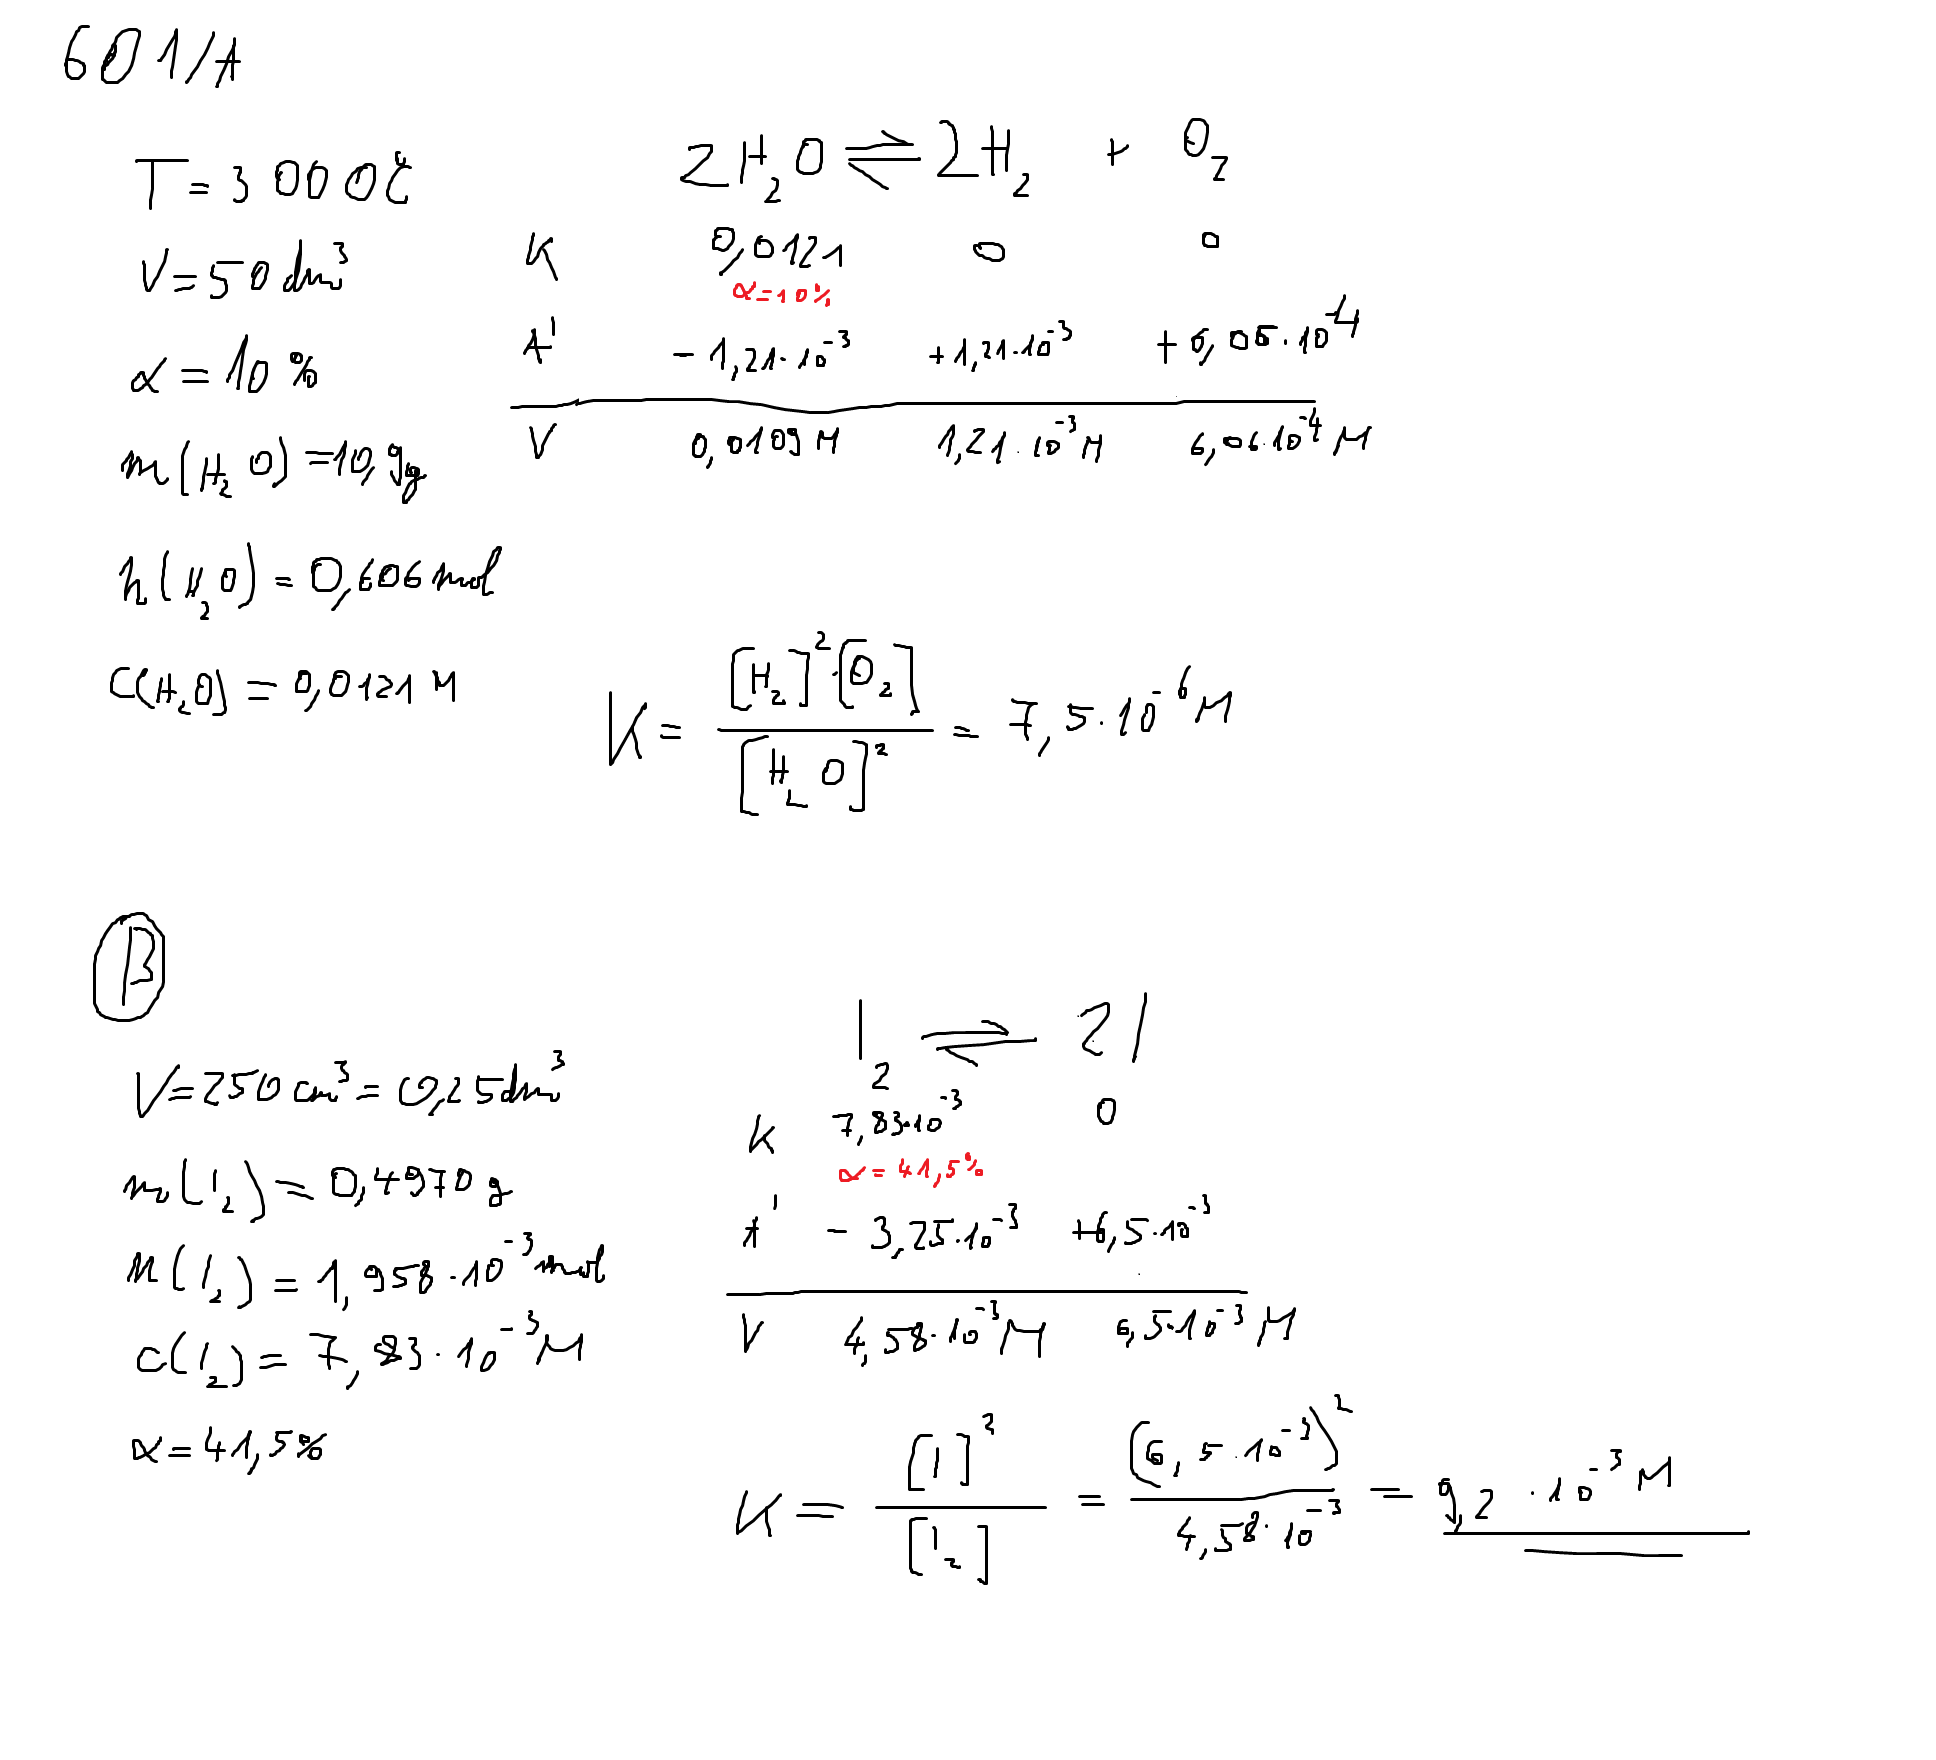 601/A
T = 3000°C
V = 50 dm³
α = 10 %
m(H₂O) = 10,9g
n(H₂O) = 0,606 mol
C(H₂O) = 0,0121 M
2H₂O ⇌ 2H₂ + O₂
K 0,0121 0 0
α = 10%
Á - 1,21·10⁻³ + 1,21·10⁻³ + 6,05·10⁻⁴
V 0,0109 M 1,21·10⁻³ M 6,06·10⁻⁴ M
K = [H₂]²·[O₂] / [H₂O]² = 7,5·10⁻⁶ M
B
V = 250 cm³ = 0,25 dm³
m(I₂) = 0,4970 g
n(I₂) = 1,958·10⁻³ mol
c(I₂) = 7,83·10⁻³ M
α = 41,5%
I₂ ⇌ 2I
K 7,83·10⁻³ 0
α = 41,5%
Á - 3,25·10⁻³ +6,5·10⁻³
V 4,58·10⁻³ M 6,5·10⁻³ M
K = [I]² / [I₂] = (6,5·10⁻³)² / 4,58·10⁻³ = 9,2·10⁻³ M